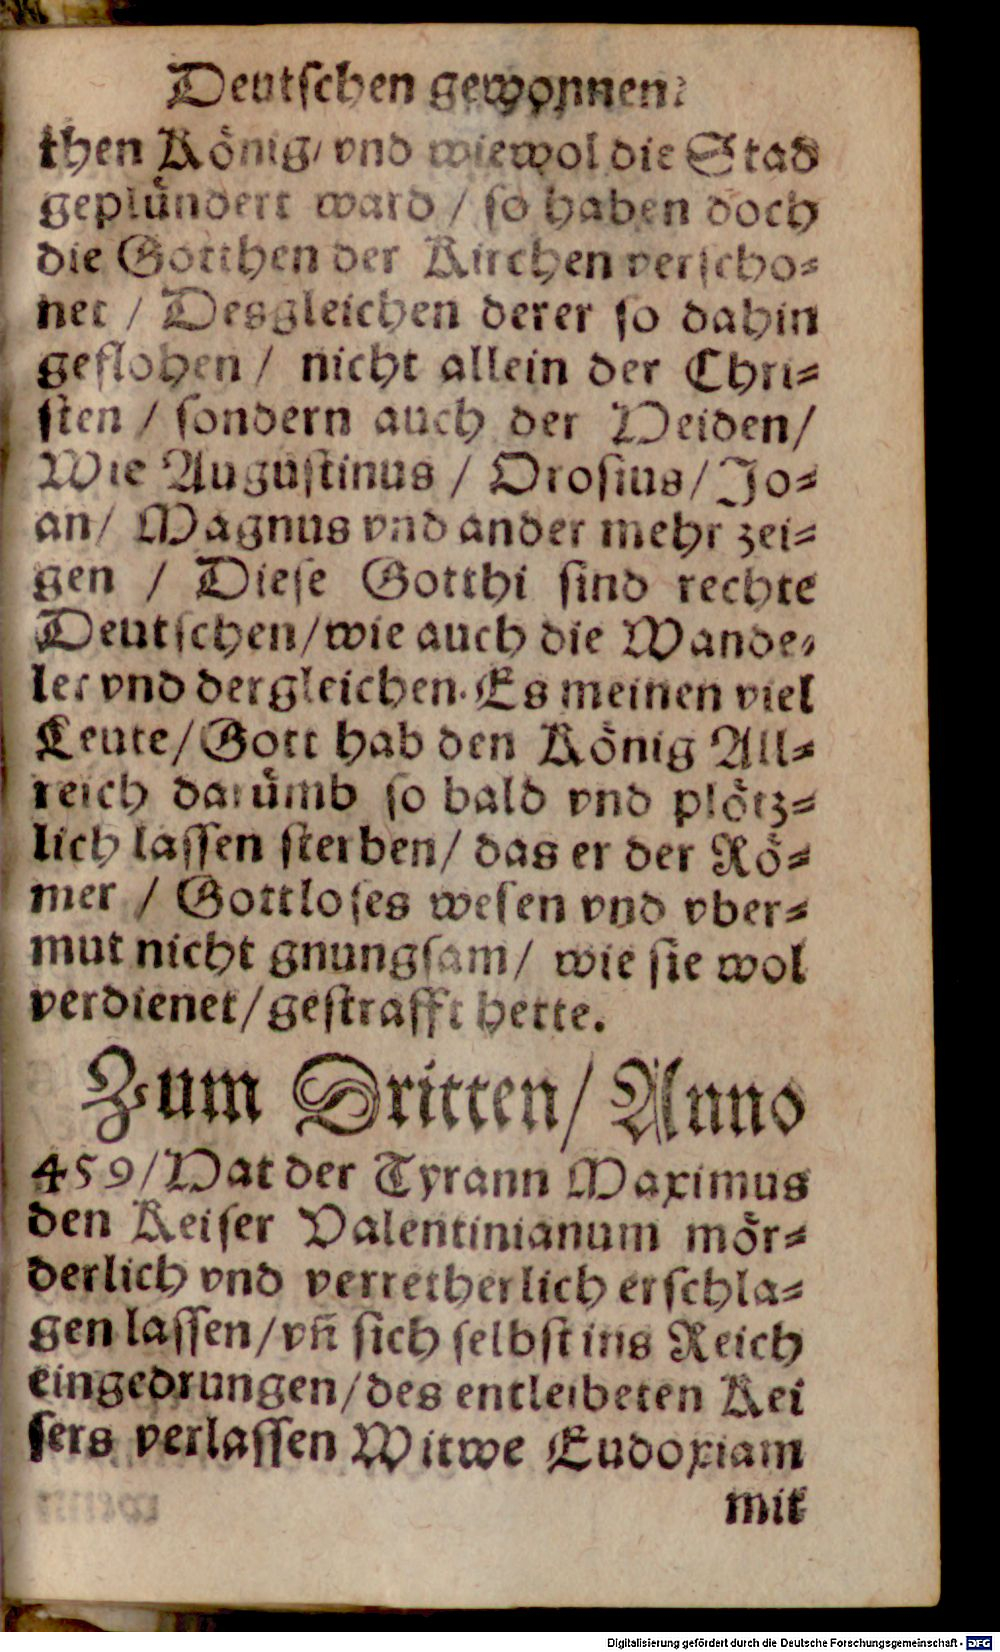 Deutschen gewonnen.
then König/ vnd wiewol die Stad
geplündert ward / so haben doch
die Gotthen der Kirchen verscho⸗
net / Desgleichen derer so dahin
geflohen / nicht allein der Chri⸗
sten / sondern auch der Heiden/
Wie Augustinus / Orosius/ Jo⸗
an/ Magnus vnd ander mehr zei⸗
gen / Diese Gotthi sind rechte
Deutschen/wie auch die Wande⸗
ler vnd dergleichen. Es meinen viel
Leute/Gott hab den König All⸗
reich darümb so bald vnd plötz⸗
lich lassen sterben/ das er der Rö⸗
mer / Gottloses wesen vnd vber⸗
mut nicht gnungsam/ wie sie wol
verdienet/gestrafft hette.
Zum Dritten/ Anno
459/Hat der Tyrann Maximus
den Keiser Valentinianum mör⸗
derlich vnd verretherlich erschla⸗
gen lassen/vn̄ sich selbst ins Reich
eingedrungen/des entleibeten Kei
sers verlassen Witwe Eudoxiam
mit
Digitalisierung gefördert durch die Deutsche Forschungsgemeinschaft - DFG